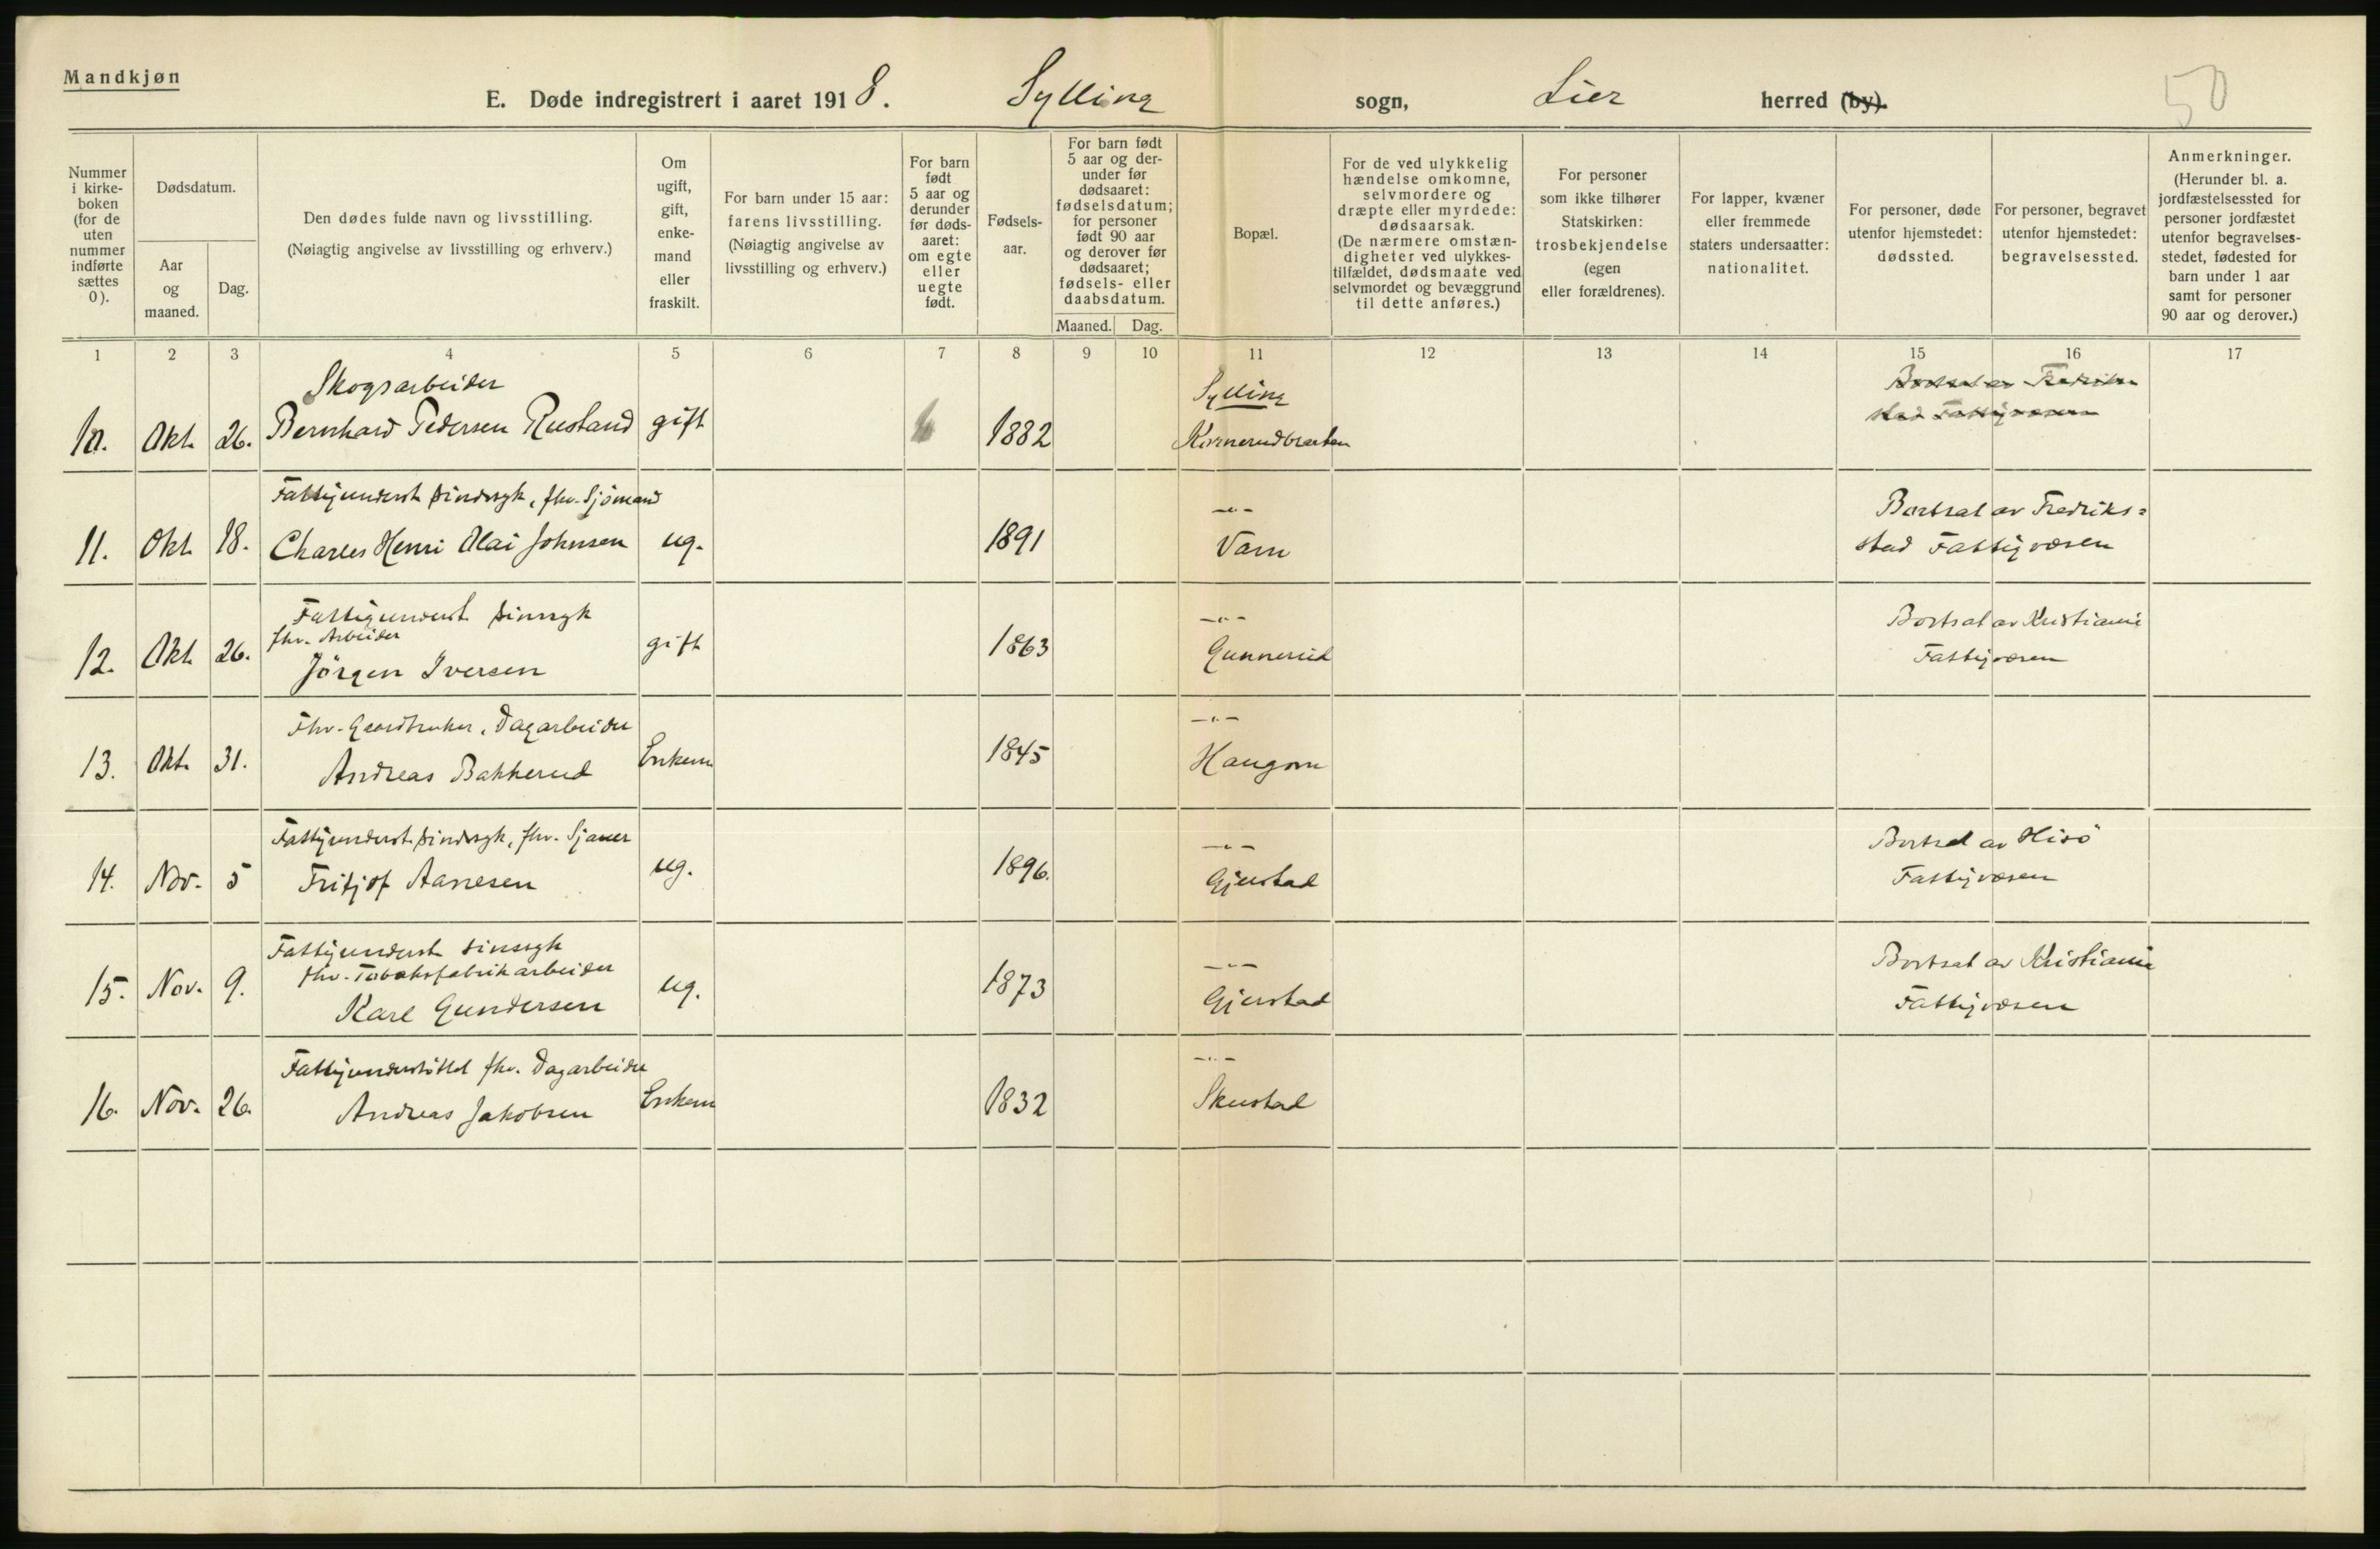 Mandkjøn
E. Døde indregistrert i aaret 1918. Sylling sogn, Lier herred (by).
50
Nummer i kirke-boken (for de uten nummer indførte sættes 0).
Dødsdatum.
Aar og maaned.
Dag.
Den dødes fulde navn og livsstilling.
(Nøiagtig angivelse av livsstilling og erhverv.)
Om ugift, gift, enke-mand eller fraskilt.
For barn under 15 aar: farens livsstilling.
(Nøiagtig angivelse av livsstilling og erhverv.)
For barn født 5 aar og derunder før døds-aaret: om egte eller uegte født.
Fødsels-aar.
For barn født 5 aar og der-under før dødsaaret: fødselsdatum; for personer født 90 aar og derover før dødsaaret; fødsels- eller daabsdatum.
Maaned. Dag.
Bopæl.
For de ved ulykkelig hændelse omkomne, selvmordere og dræpte eller myrdede: dødsaarsak.
(De nærmere omstæn-digheter ved ulykkes-tilfældet, dødsmaate ved selvmordet og bevæggrund til dette anføres.)
For personer som ikke tilhører Statskirken: trosbekjendelse (egen eller forældrenes).
For lapper, kvæner eller fremmede staters undersaatter: nationalitet.
For personer, døde utenfor hjemstedet: dødssted.
For personer, begravet utenfor hjemstedet: begravelsessted.
Anmerkninger.
(Herunder bl. a. jordfæstelsessted for personer jordfæstet utenfor begravelses-stedet, fødested for barn under 1 aar samt for personer 90 aar og derover.)
1 2 3 4 5 6 7 8 9 10 11 12 13 14 15 16 17
Skogsarbeider Sylling Bortsat av Fredrik
10. Okt. 26. Bernhard Pedersen Rustand gift 1882 Kornerudbraaten stad Fattigvæsen
Fattigunderst. sindssyk, fhv. Sjömand -"- Bortsat av Fredriks=
11. Okt. 18. Charles Henri Olai Johnsen ug. 1891 Værn stad Fattigvæsen
Fattigunderst. sinssyk -"- Bortsat av Kristiania
fhv. Arbeider
12. Okt. 26. Jörgen Iversen gift 1863 Gunnerud Fattigvæsen
Fhv. Gaardbruker, Dagarbeider -"-
13. Okt. 31. Andreas Bakkerud Enkem 1845 Haugom
Fattigunderst. sindssyk, fhv. Sjauer -"- Bortsat av Hisö
14. Nov. 5 Fritjof Aanesen ug. 1896. Gjerstad Fattigvæsen
Fattigunderst. sinssyk -"- Bortsat av Kristiania
fhv. Tobaksfabrikarbeider
15. Nov. 9. Karl Gundersen ug. 1873 Gjerstad Fattigvæsen
Fattigunderstöttet fhv. Dagarbeider -"-
16. Nov. 26. Andreas Jakobsen Enkem 1832 Skustad